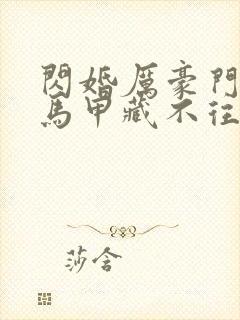 閃婚厲豪門
馬甲藏不往
莎含